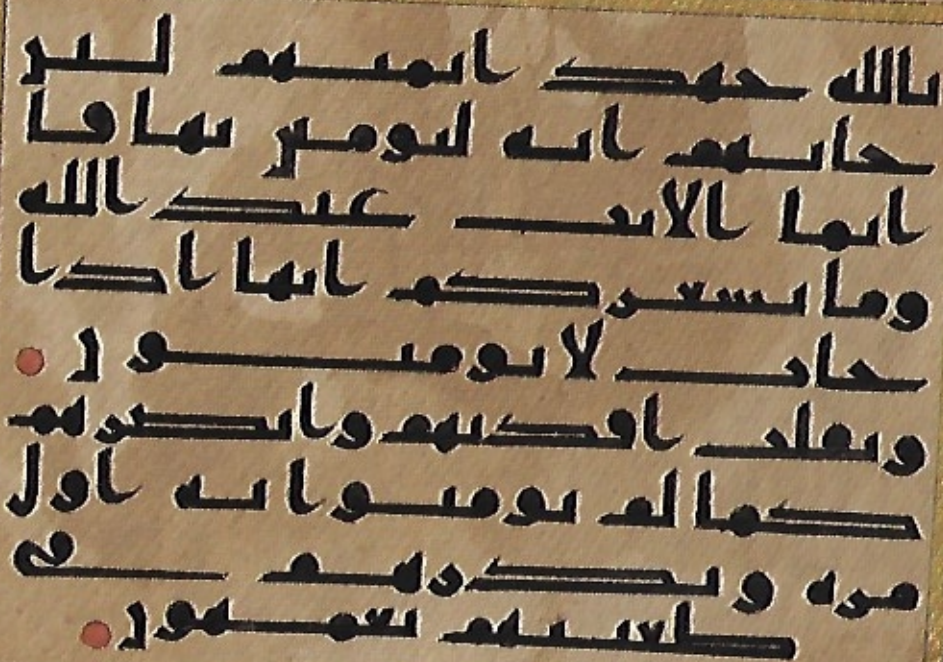 بالله جهد ايمنهم لين
جاتهم ايه ليومنن بها قل
انما الايت عند الله
وما يشعركم انها اذا
جات لا يومنون
ونقلب افدتهم وابصرهم
كما لم يومنوا به اول
مره ونذرهم في
طغينهم يعمهون